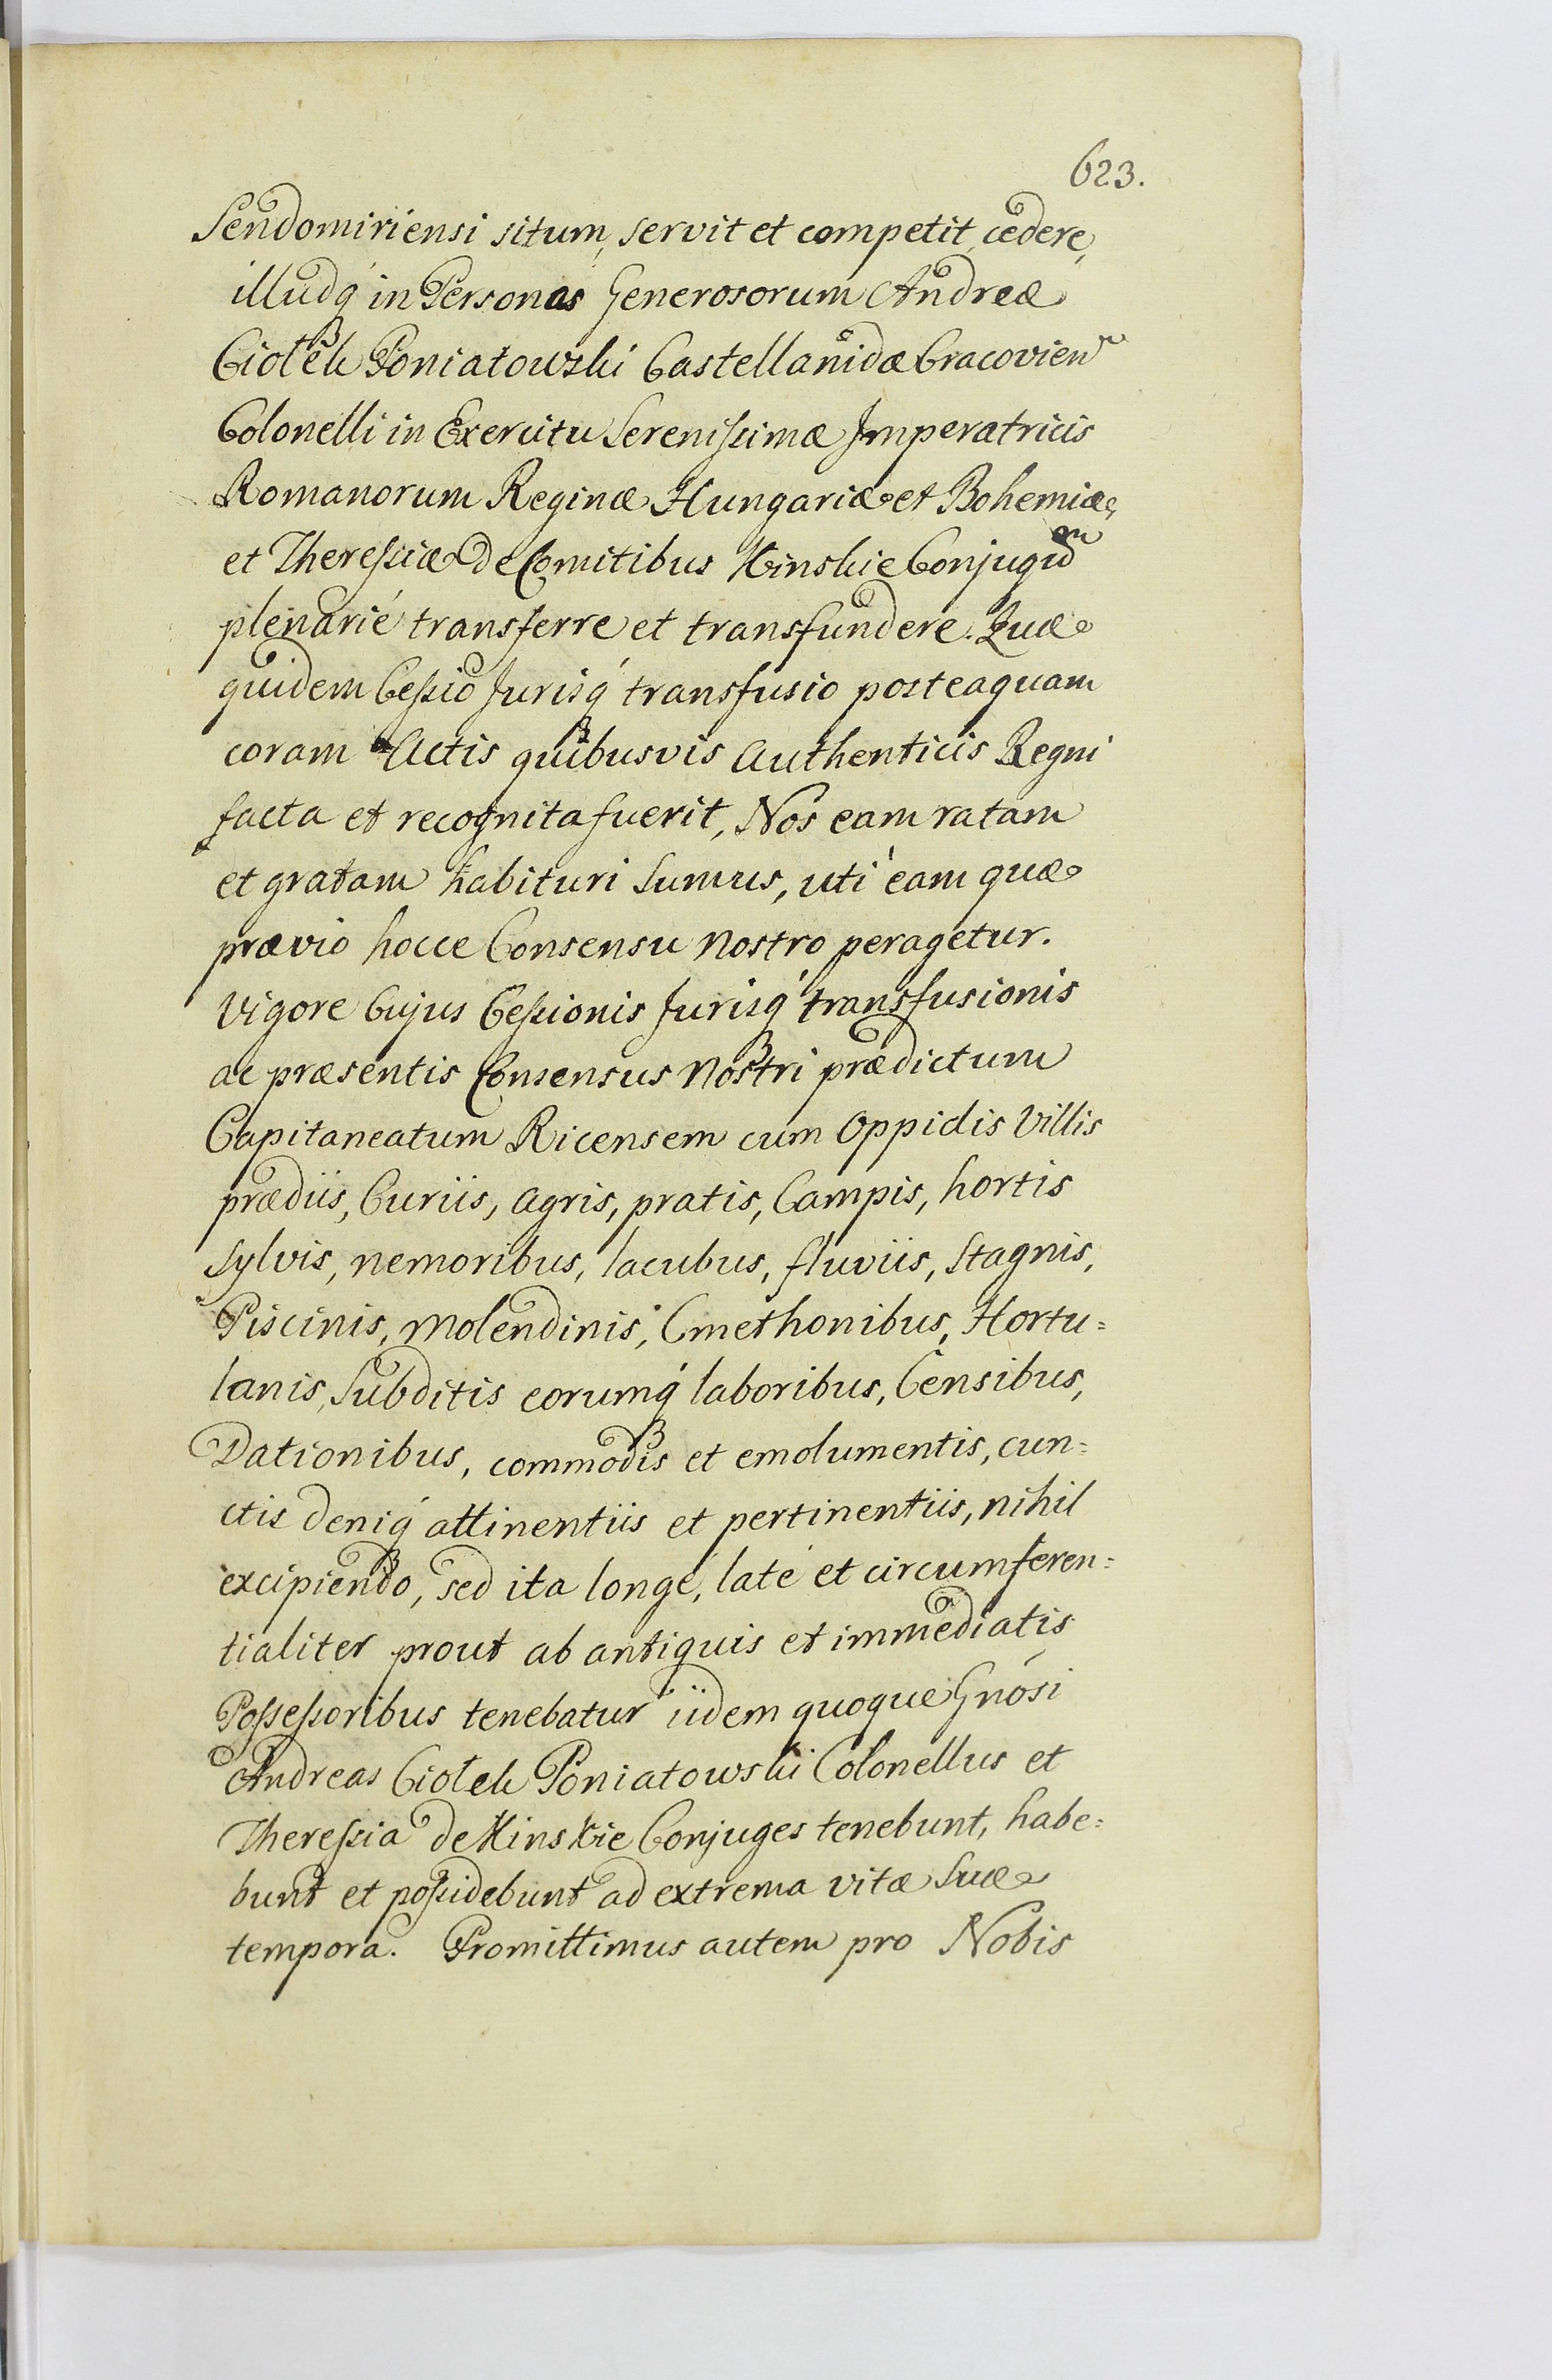 623.
Sendomiriensi situm, servit et competit, cedere,
illudq́ in Personas Generosorum Andreæ
Ciołek Poniatowski Castellanidæ Cracovien
Colonelli in Exercitu Serenissimæ Imperatricis
Romanorum Reginæ Hungariæ et Bohemiæ,
et Theressiæ de Comitibus Kinskie Conjugum
plenarié transferre et transfundere. Quæ
quidem Cessio Jurisq́ transfusio posteaquam
coram Actis quibusvis Authenticis Regni
facta et recognita fuerit, Nos eam ratam
et gratam habituri sumus, uti eam quæ
prævio hocce Consensu nostro peragetur.
Vigore Cujus Cessionis Jurisq́ transfusionis
ac præsentis Consensus Nostri prædictum
Capitaneatum Ricensem cum Oppidis Villis
prædiis, Curiis, agris, pratis, Campis, hortis
sylvis, nemoribus, lacubus, fluviis, Stagnis,
Piscinis, molendinis, Cmethonibus, Hortu=
lanis, Subditis eorumq́ laboribus, Censibus,
Dationibus, commodis et emolumentis, cun=
ctis deniq́ attinentiis et pertinentiis, nihil
excipiendo, sed ita longé, laté et circumferen=
tialiter prout ab antiquis et immediatis
Possessoribus tenebatur iidem quoque Gnósi
Andreas Ciołek Poniatowski Colonellus et
Theressia de Kinskie Conjuges tenebunt, habe=
bunt et possidebunt ad extrema vitæ suæ
tempora. Promittimus autem pro Nobis